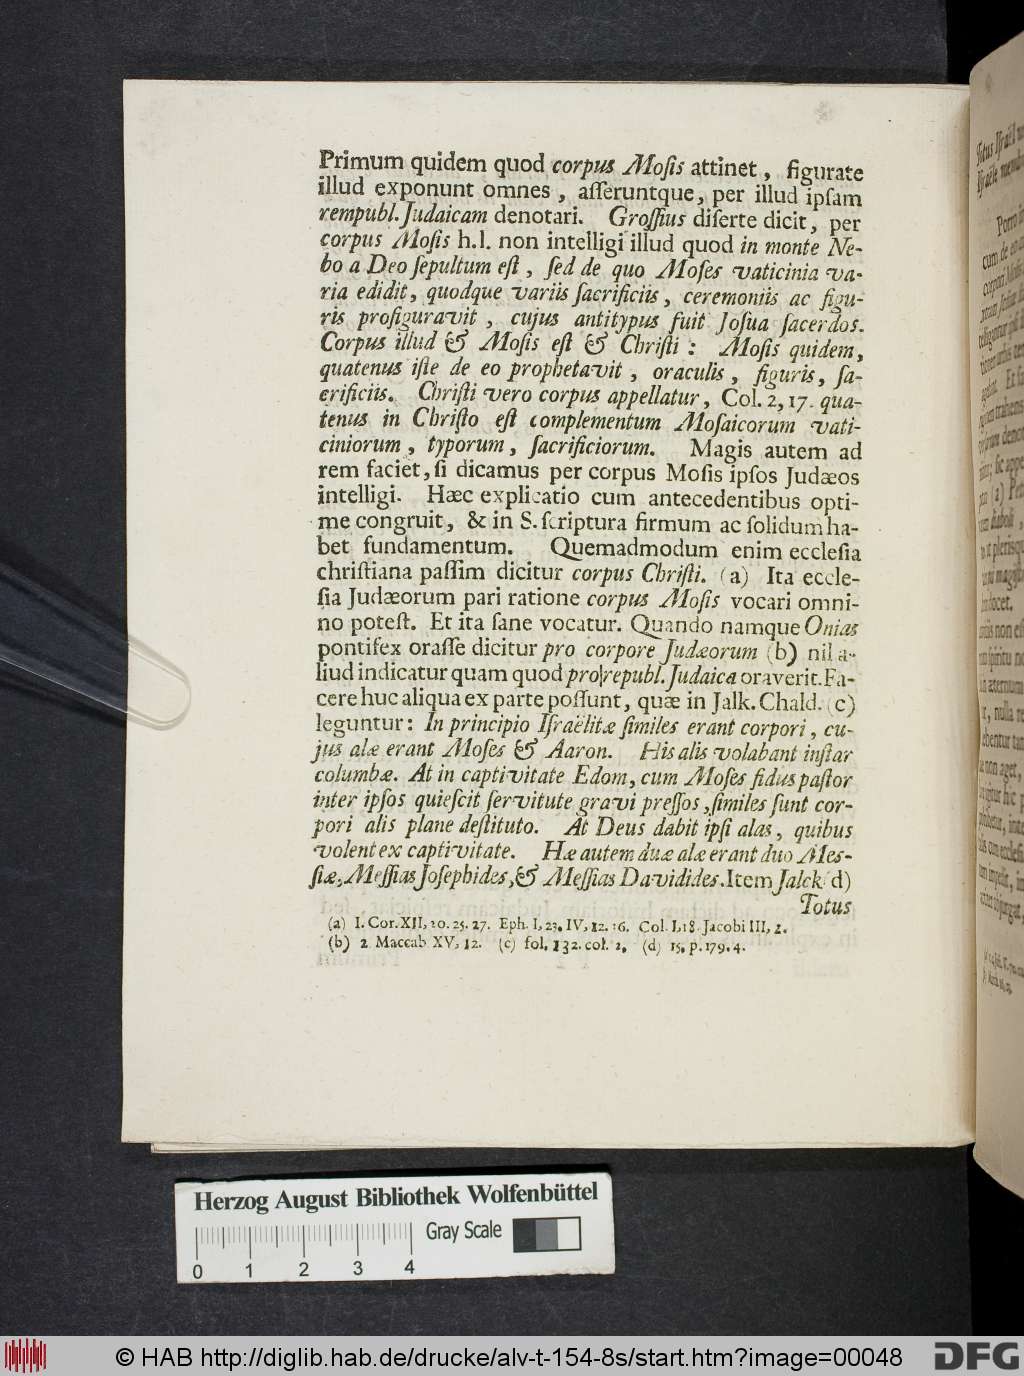 Primum quidem quod corpus Moſis attinet, figurate
illud exponunt omnes, aſſeruntque, per illud ipſam
rempubl. Judaicam denotari. Groſſius diſerte dicit, per
corpus Moſis h.l. non intelligi illud quod in monte Ne-
bo a Deo ſepultum eſt, ſed de quo Moſes vaticinia va-
ria edidit, quodque variis ſacrificiis, ceremoniis ac figu-
ris profiguravit, cujus antitypus fuit Joſua ſacerdos.
Corpus illud & Moſis eſt & Chriſti: Moſis quidem,
quatenus iſte de eo prophetavit, oraculis, figuris, ſa-
crificiis. Chriſti vero corpus appellatur, Col. 2, 17. qua-
tenus in Chriſto eſt complementum Moſaicorum vati-
ciniorum, typorum, ſacrificiorum. Magis autem ad
rem faciet, ſi dicamus per corpus Moſis ipſos Judæos
intelligi. Hæc explicatio cum antecedentibus opti-
me congruit, & in S. ſcriptura firmum ac ſolidum ha-
bet fundamentum. Quemadmodum enim eccleſia
chriſtiana paſſim dicitur corpus Chriſti. (a) Ita eccle-
ſia Judæorum pari ratione corpus Moſis vocari omni-
no poteſt. Et ita ſane vocatur. Quando namque Onias
pontifex oraſſe dicitur pro corpore Judæorum (b) nil a-
liud indicatur quam quod pro republ. Judaica oraverit. Fa-
cere huc aliqua ex parte poſſunt, quæ in Jalk. Chald. (c)
leguntur: In principio Iſraëlitæ ſimiles erant corpori, cu-
jus alæ erant Moſes & Aaron. His alis volabant inſtar
columbæ. At in captivitate Edom, cum Moſes fidus paſtor
inter ipſos quieſcit ſervitute gravi preſſos, ſimiles ſunt cor-
pori alis plane deſtituto. At Deus dabit ipſi alas, quibus
volent ex captivitate. Hæ autem duæ alæ erant duo Meſ-
ſiæ, Meſſias Joſephides, & Meſſias Davidides. Item Jalck (d)
Totus
(a) I. Cor. XII, 20. 25. 27. Eph. I, 23. IV, 12. 16. Col. I, 18. Jacobi III, 2.
(b) 2. Maccab. XV, 12. (c) fol. 132. col. 2. (d) 15. p. 179. 4.
Herzog August Bibliothek Wolfenbüttel
Gray Scale
0 1 2 3 4
© HAB http://diglib.hab.de/drucke/alv-t-154-8s/start.htm?image=00048
DFG